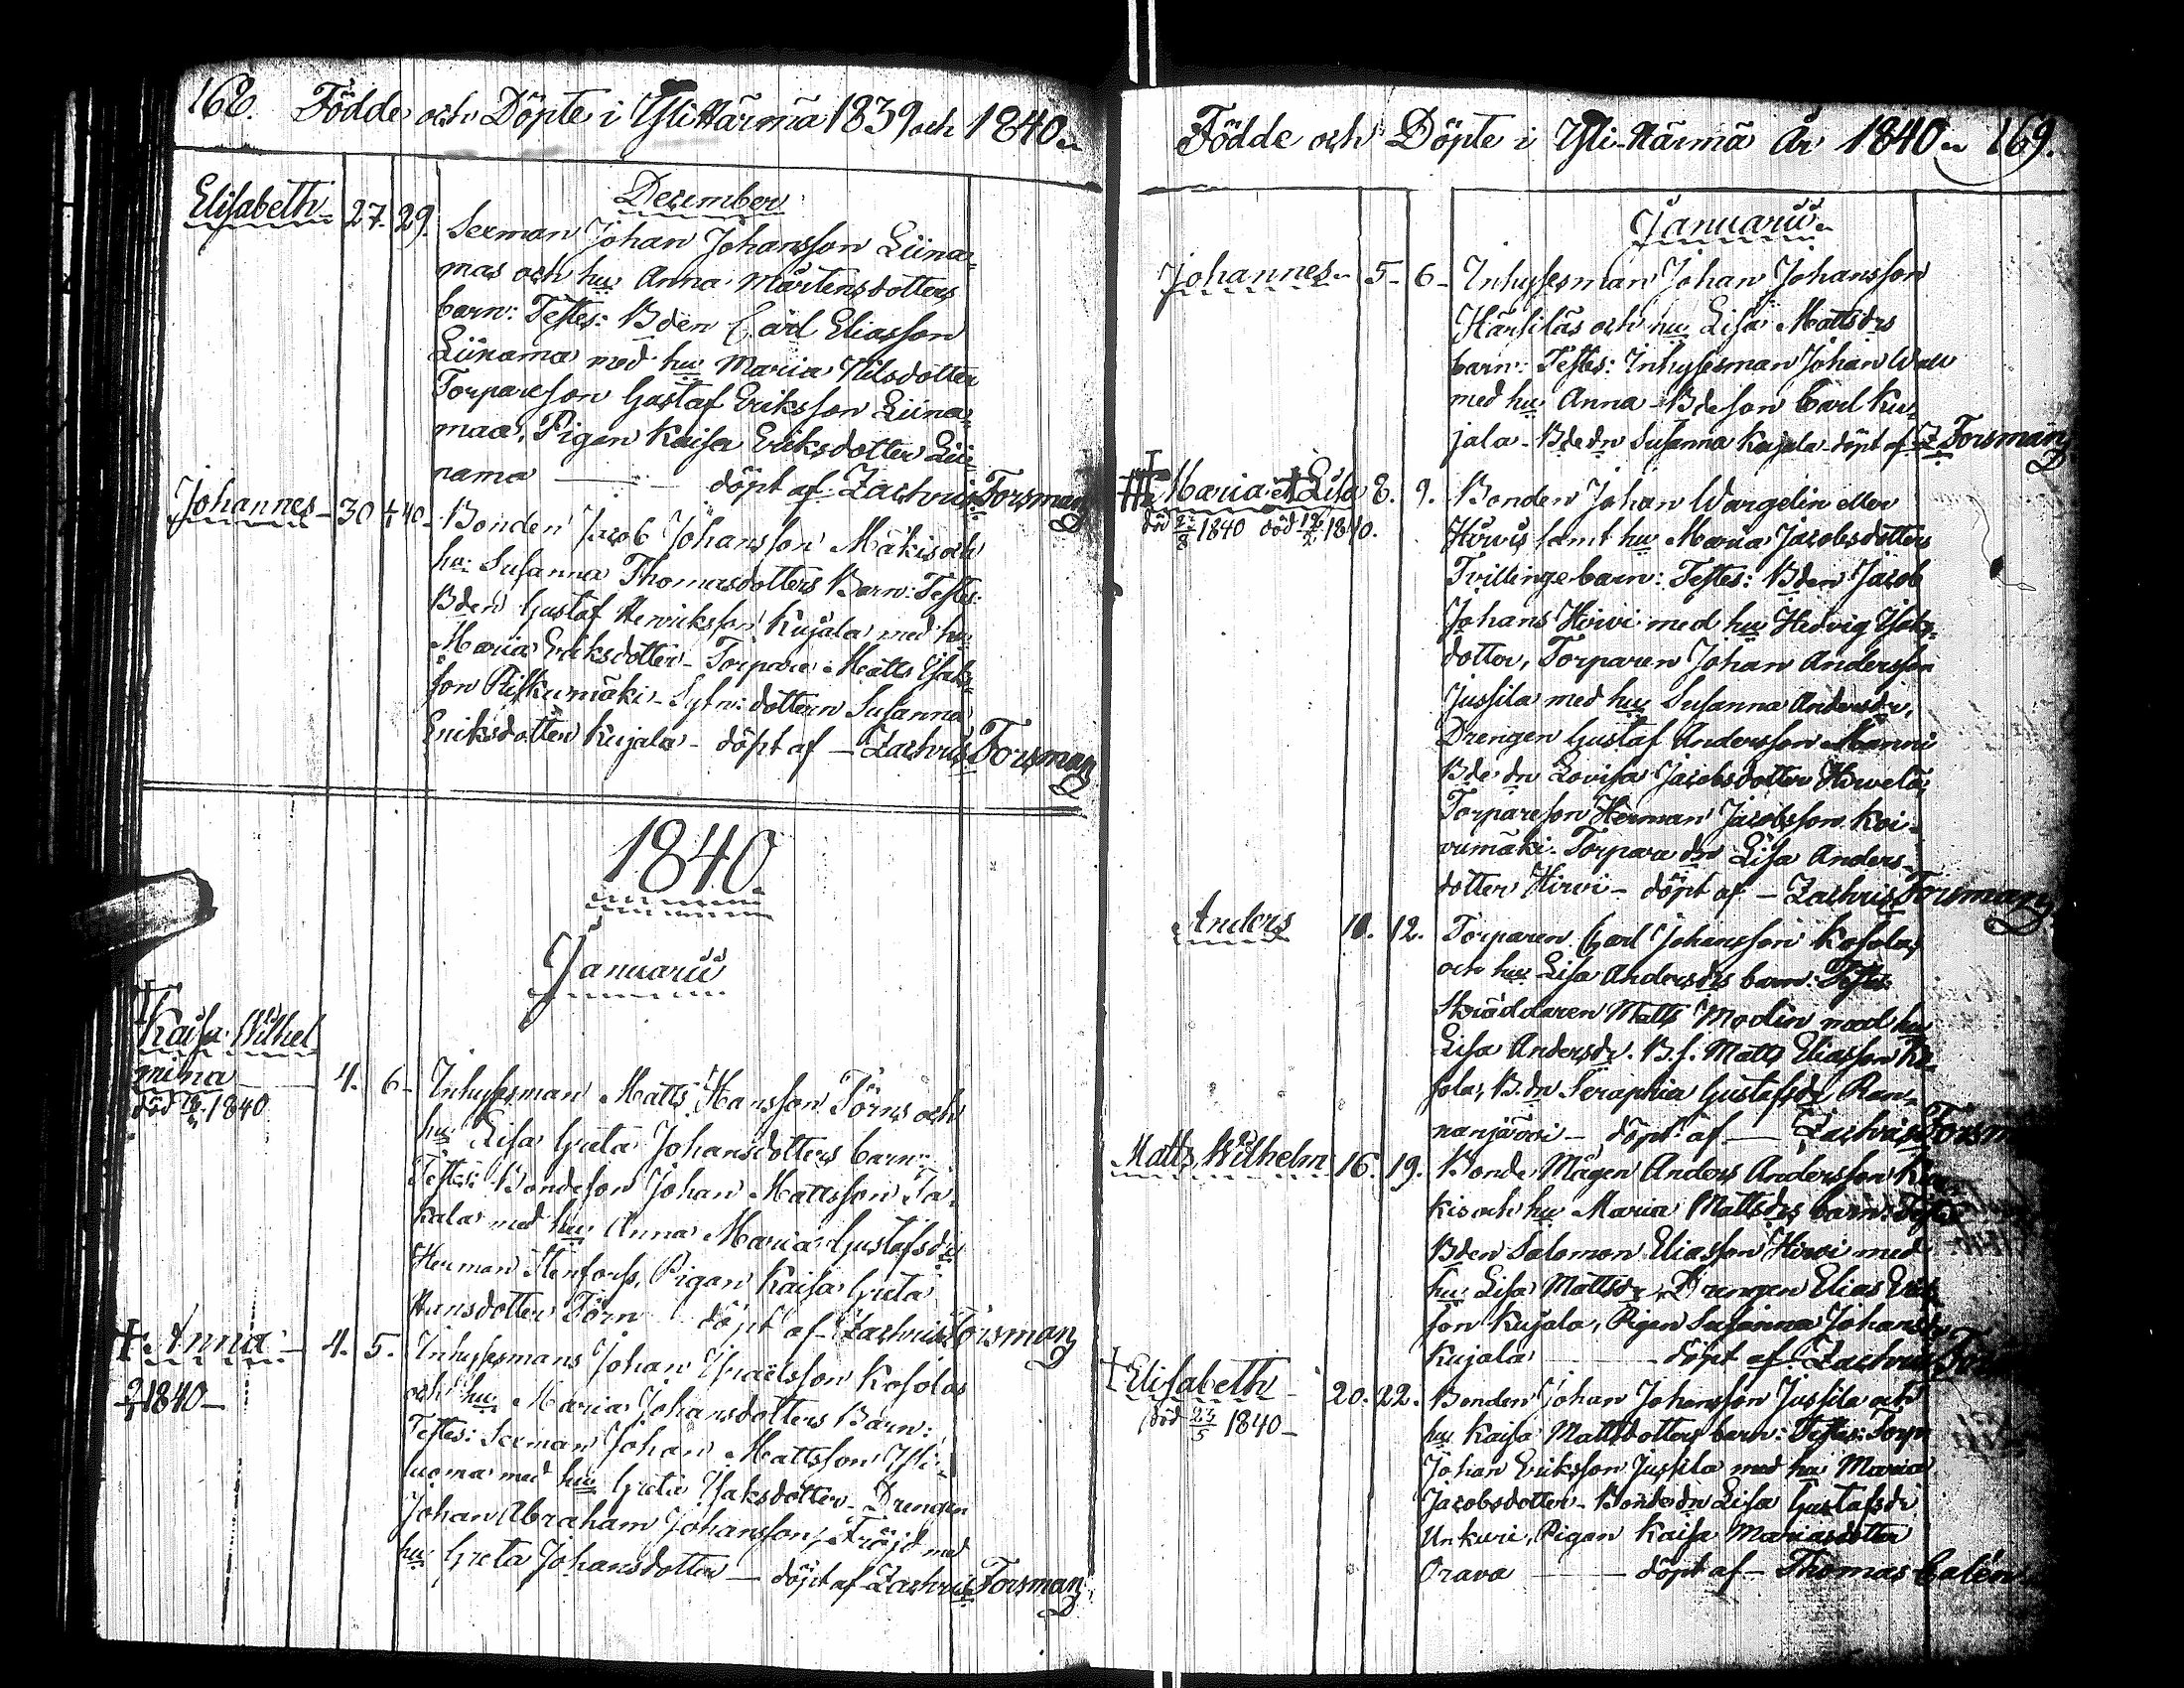 168. Födde och Döpte i Ylihärmä 1839 och 1840.
December
Elisabeth 27. 29. Sexman Johan Johansson Liina-
mas och hu Anna Mårtensdotters
barn: Testes: Bden Carl Eliasson
Liinama med hu Maria Nilsdotter
Torpareson Gustaf Eriksson Liina-
maa, Pigan Kaisa Eriksdotter Lii-
nama — döpt af Zachris Forsman
Johannes 30 1/1 40 Bonden Jacob Johansson Mäkis och
hu: Susanna Thomasdotters Barn: Testes:
Bden Gustaf Henriksson Kujala med hu
Maria Eriksdotter - Torpare Matts Isaks-
son Riskumäki - Sytn: dottern Susanna
Eriksdotter Kujala - döpt af — Zachris Forsman
1840.
Januarii
† Kaisa Wilhel
mina 4. 6 - Inhysesman Matts Hansson Törns och
död 1840
hu Lisa Greta Johansdotters barn:
Testes: Bondeson Johan Mattsson Ta-
kala med hu Anna Maria Gustafsdr
Herman Stenfors, Pigan Kaisa Greta
Hansdotter Törn döpt af Zachris Forsman
† Anna 4. 5. Inhysesmans Johan Israelsson Kosolas
1840 —
och hu Maria Johansdotters Barn:
Testes: Sexman Johan Mattsson Yli-
luoma med hu Greta Isaksdotter - Drengen
Johan Abraham Johansson, Fröjd med
hu Greta Johansdotter — döpt af Zachris Forsman
Födde och Döpte i Yli-Härmä År 1840 169.
Januarii
Johannes 5 - 6 - Inhysesman Johan Johansson
Härsiläs och hu Lisa Mattsdrs
barn: Testes: Inhysesman Johan Wall
med hu Anna - Bdeson Carl Ku-
jala - Bdedr Susanna Kujala döpt af Z Forsman
† Maria et † Lisa 8. 9. Bonden Johan Wargelin eller
död 23/8 1840 död 1840.
Hirvis samt hu Maria Jacobsdotters
Tvillingebarn: Testes: Bden Jacob
Johans Hirvi med hu Hedvig Isaks-
dotter, Torparen Johan Andersson
Jussila med hu Susanna Andersdr,
Drengen Gustaf Andersson Manni
Bde dr Lovisa Jacobsdotter Hirvelä,
Torpareson Herman Jacobsson Koi-
vumäki - Torpare dr Lisa Anders-
dotter Hirvi - döpt af — Zachris Forsman
Anders 10. 12. Torparen Carl Johansson Kosolas
och hu Lisa Andersdrs barn: Testes:
Skräddaren Matts Modin med hu
Lisa Andersdr. B.s. Matts Eliasson Ko-
sola, B.dr Seraphia Gustafsdr Ran-
nanjärvi - döpt af — Zachris Forsm
Matts Wilhelm 16. 19. Bonde Mågen Anders Andersson
kis och hu Maria Mattsdrs barn: Testes
Bden Salomon Eliasson Hirvi med
hu Lisa Mattsdr, Drengen Elias Erik-
son Kujala, Pigan Susanna Johansdr
Kujala — döpt af Zachris
† Elisabeth 20. 22. Bonden Johan Johansson Jussila och
död 23/5 1840 -
hu Kaisa Mattsdotters barn: Testes: Torp
Johan Eriksson Jussila med hu Maria
Jacobsdotter - Bondedr Lisa Gustafsdr
Unkuri, Pigan Kaisa Mariasdotter
Orava — döpt af — Thomas Calén